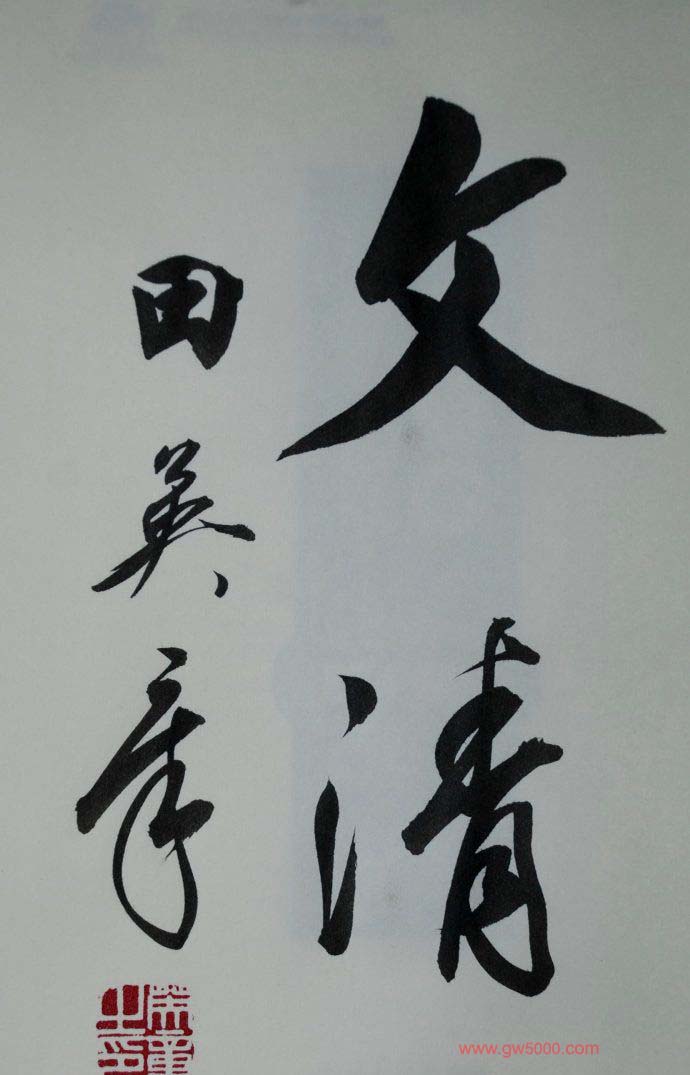 文清
田英章
英章之印
www.gw5000.com